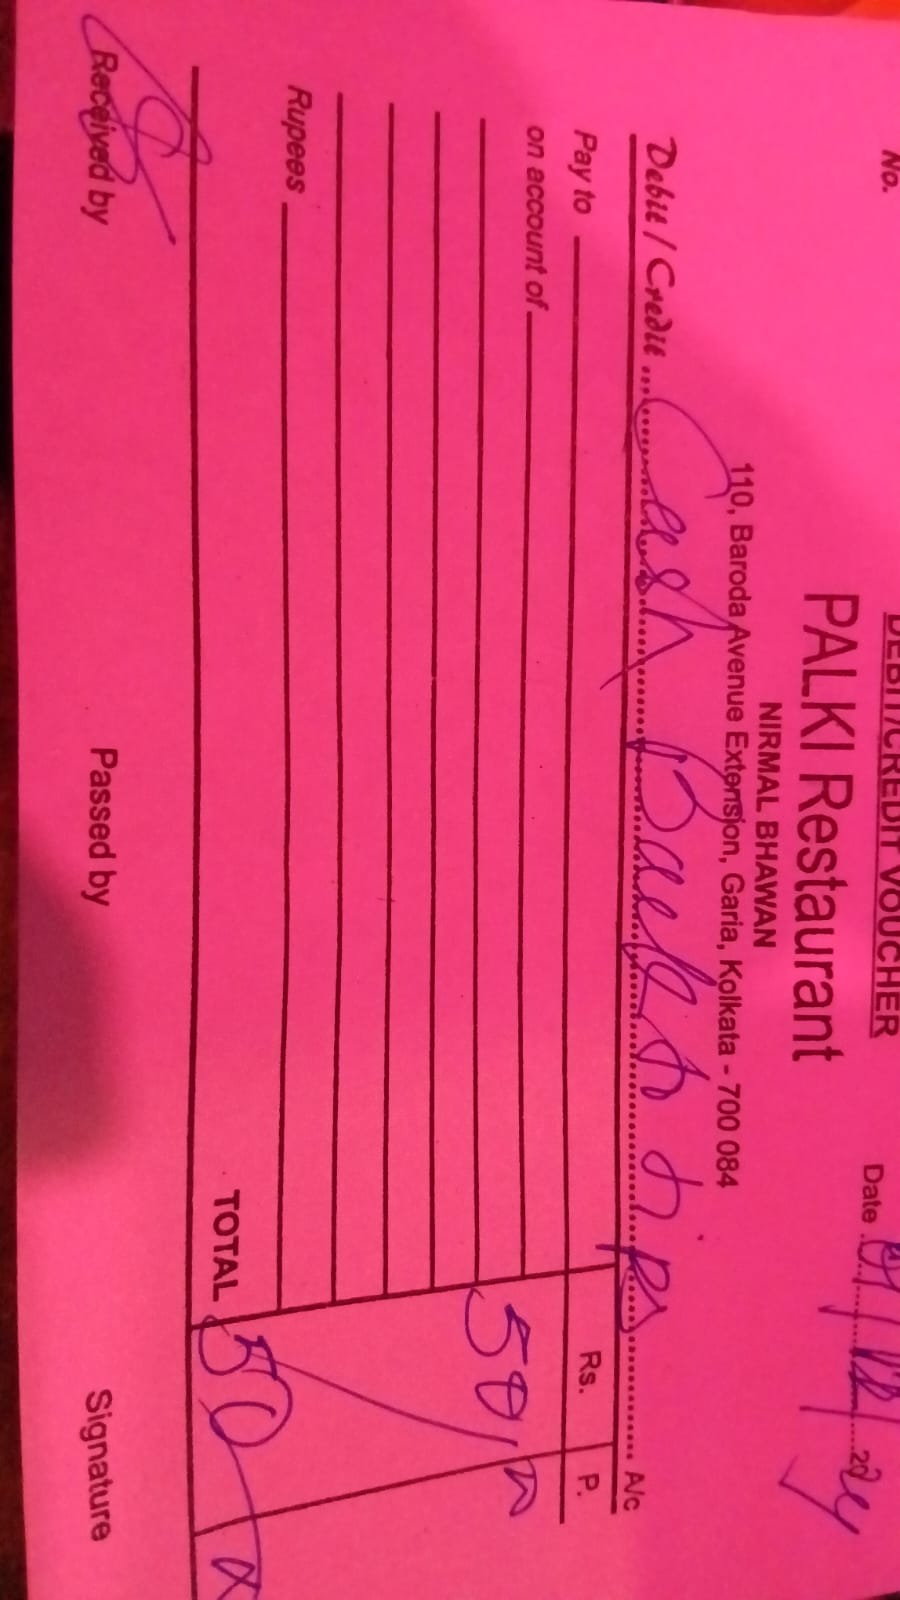 DEBIT/CREDIT VOUCHER
No.
PALKI Restaurant
Date
NIRMAL BHAWAN
110, Baroda Avenue Extension, Garia, Kolkata - 700 084
Debit / Credit Cash Back to tips A/c
Pay to Rs. P.
on account of
50/-
Rupees
TOTAL 50/-
Received by Passed by Signature